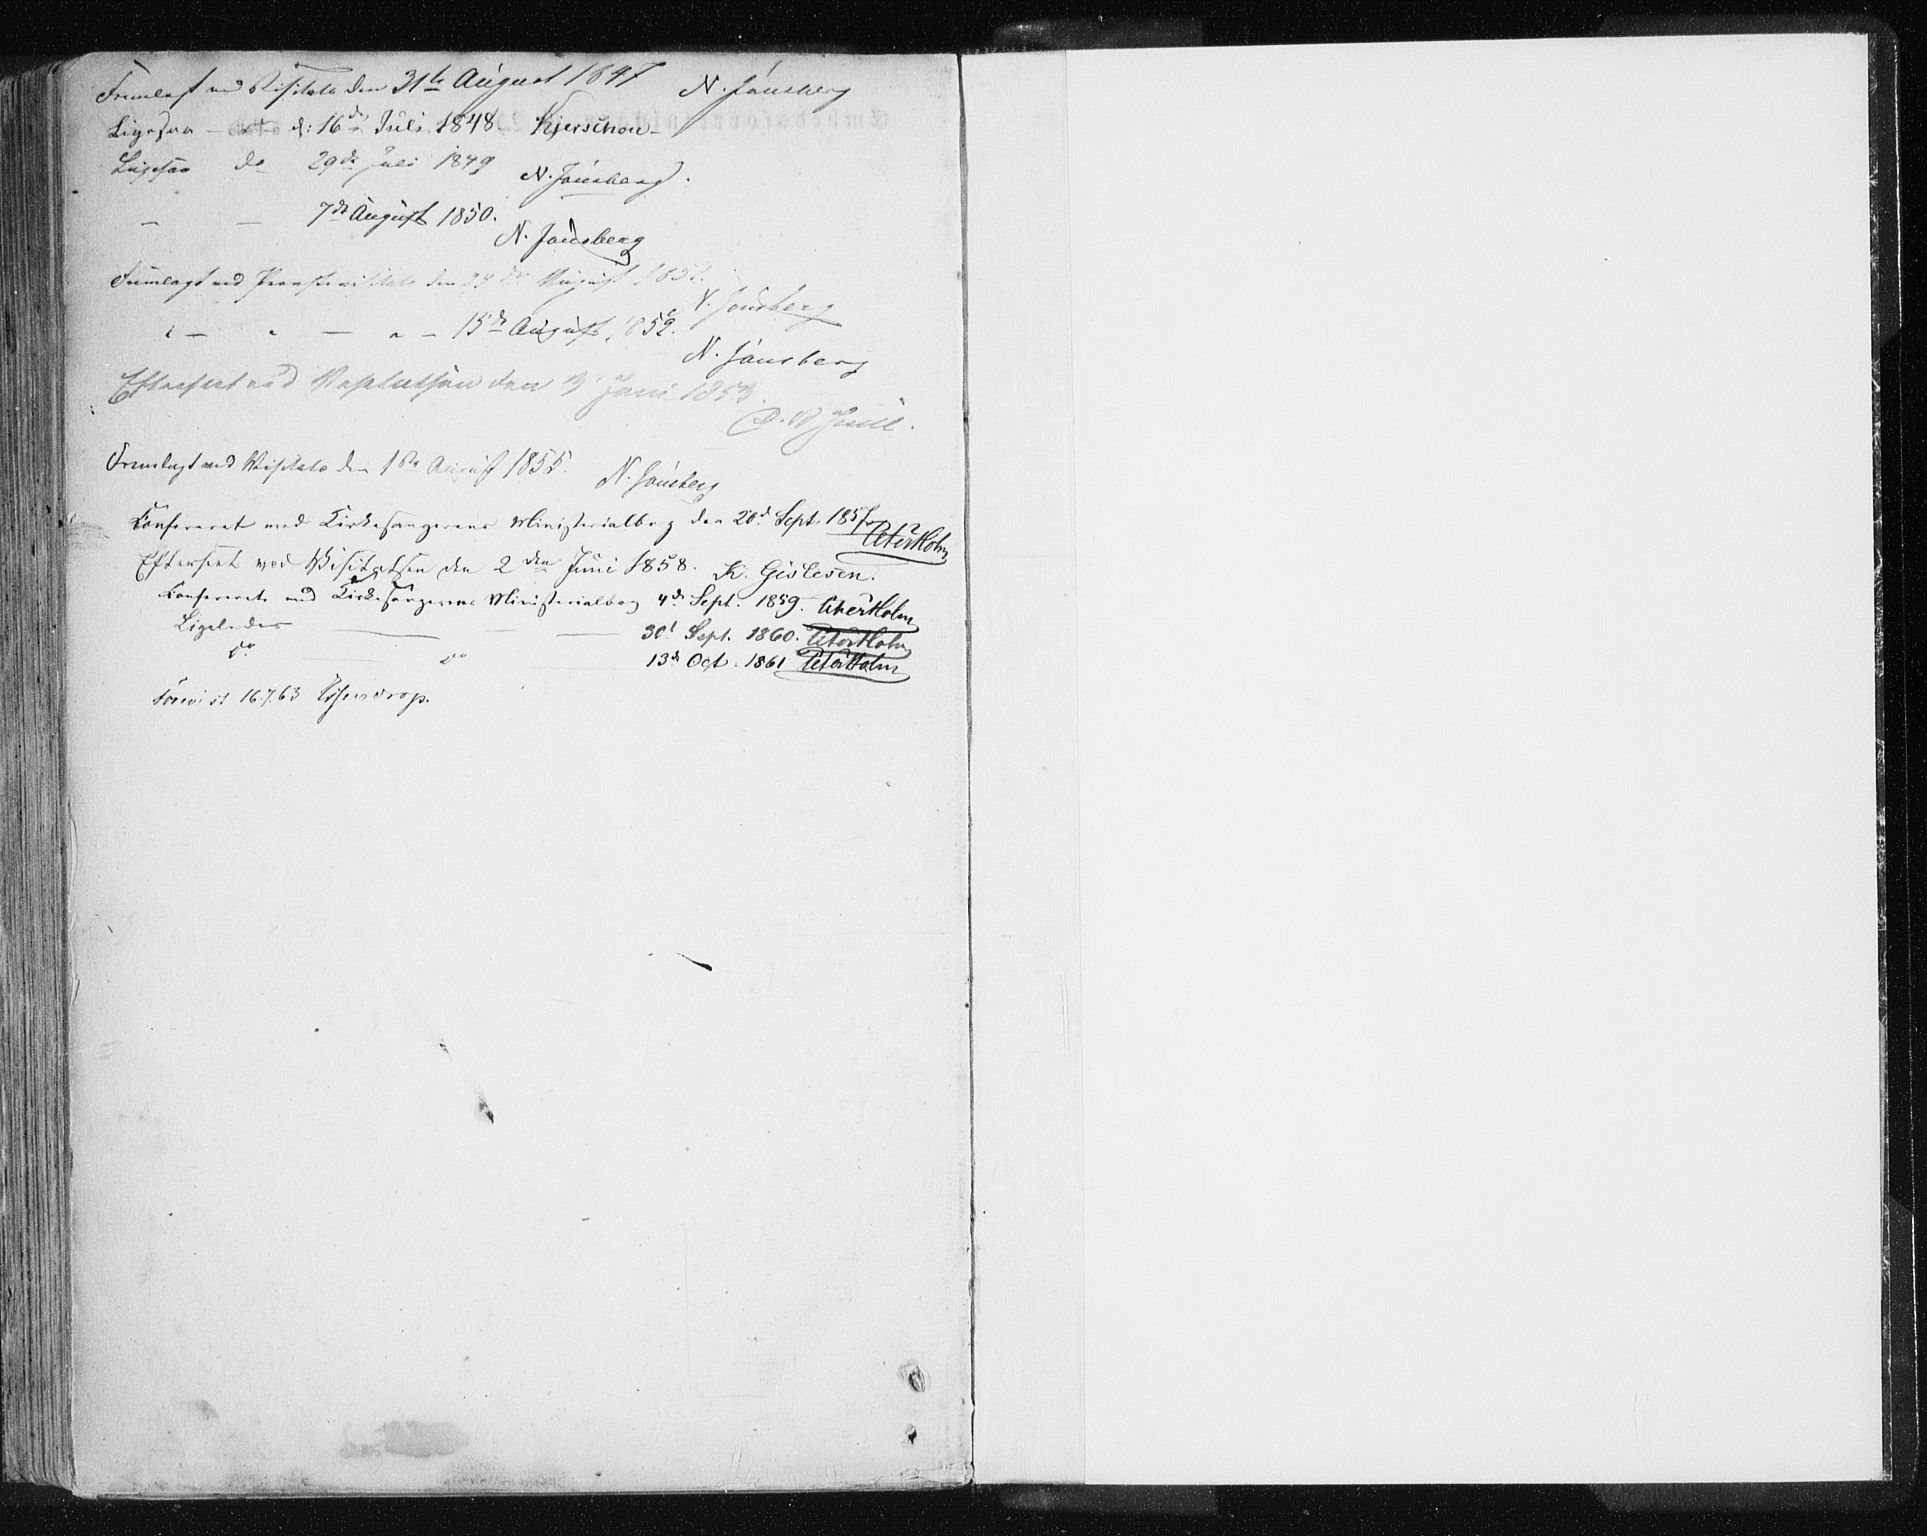 Fremlagt ved Visitats den 31te August 1847 N. Jausberg
Ligesaa d: 16de Juli 1848 Kjerschow
Ligesaa do 29de Juli 1849 N. Jausberg.
— — 7de August 1850. N. Jausberg
Fremlagt ved den August N. Jausberg
— 15de August 1852. N. Jausberg
Efterseet ved Visitatsen den Juni
Juell.
Fremlagt ved Visitats den August 1855. N. Jausberg
Confereret med Kirkesangerens Ministerialbog den 20d Sept. 1857. Peter Holm
Efterseet ved Visitatsen den 2den Juni 1858. K. Gislesen.
Confereret med Kirkesangerens Ministerialbog 4de Sept. 1859. Peter Holm
Ligeledes — — — 30t Sept. 1860. Peter Holm
do — do — 13de Oct. 1861 Peter Holm
Forevist 16.7.63